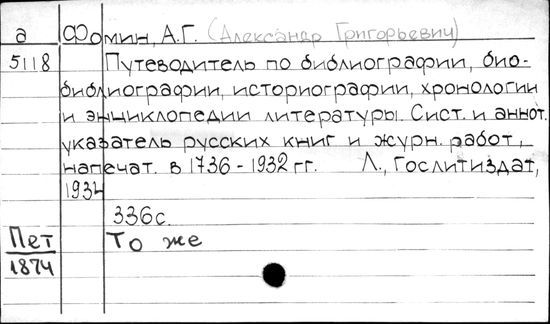 а Фомин, А.Г. (Александр Григорьевич)
5118 Путеводитель по библиографии, био-
библиографии, историографии, хронологии
и энциклопедии литературы. Сист. и аннот.
указатель русских книг и журн. работ,
напечат. в 1736-1932 гг. Л., Гослитиздат,
1934
336с.
Пет То же
1874